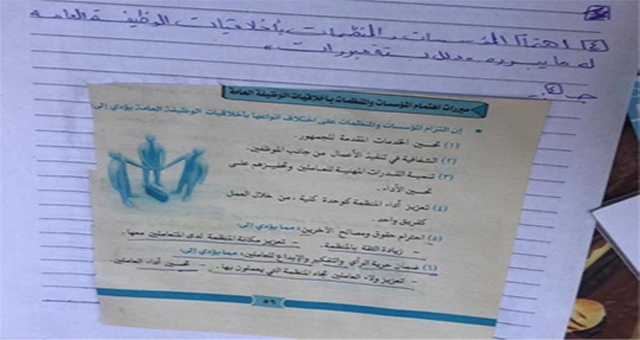 [٤] اهتمام المؤسسات والمنظمات بأخلاقيات الوظيفة العامة
له ما يبرره
جـ ٤ :-
مبررات اهتمام المؤسسات والمنظمات بأخلاقيات الوظيفة العامة
• إن التزام المؤسسات والمنظمات على اختلاف أنواعها بأخلاقيات الوظيفة العامة يؤدي إلى:
(١) تحسين الخدمات المقدمة للجمهور.
(٢) الشفافية في تنفيذ الأعمال من جانب الموظفين.
(٣) تنمية القدرات المهنية للعاملين وتحفيزهم على
تحسين الأداء.
(٤) تعزيز أداء المنظمة كوحدة كلية ، من خلال العمل
كفريق واحد.
(٥) احترام حقوق ومصالح الآخرين، مما يؤدي إلى:
– زيادة الثقة بالمنظمة. – تعزيز مكانة المنظمة لدى المتعاملين معها.
(٦) ضمان حرية الرأي والتفكير والإبداع للعاملين، مما يؤدي إلى:
– تعزيز ولاء العاملين تجاه المنظمة التي يعملون بها. – تحسين أداء العاملين.
٥٦